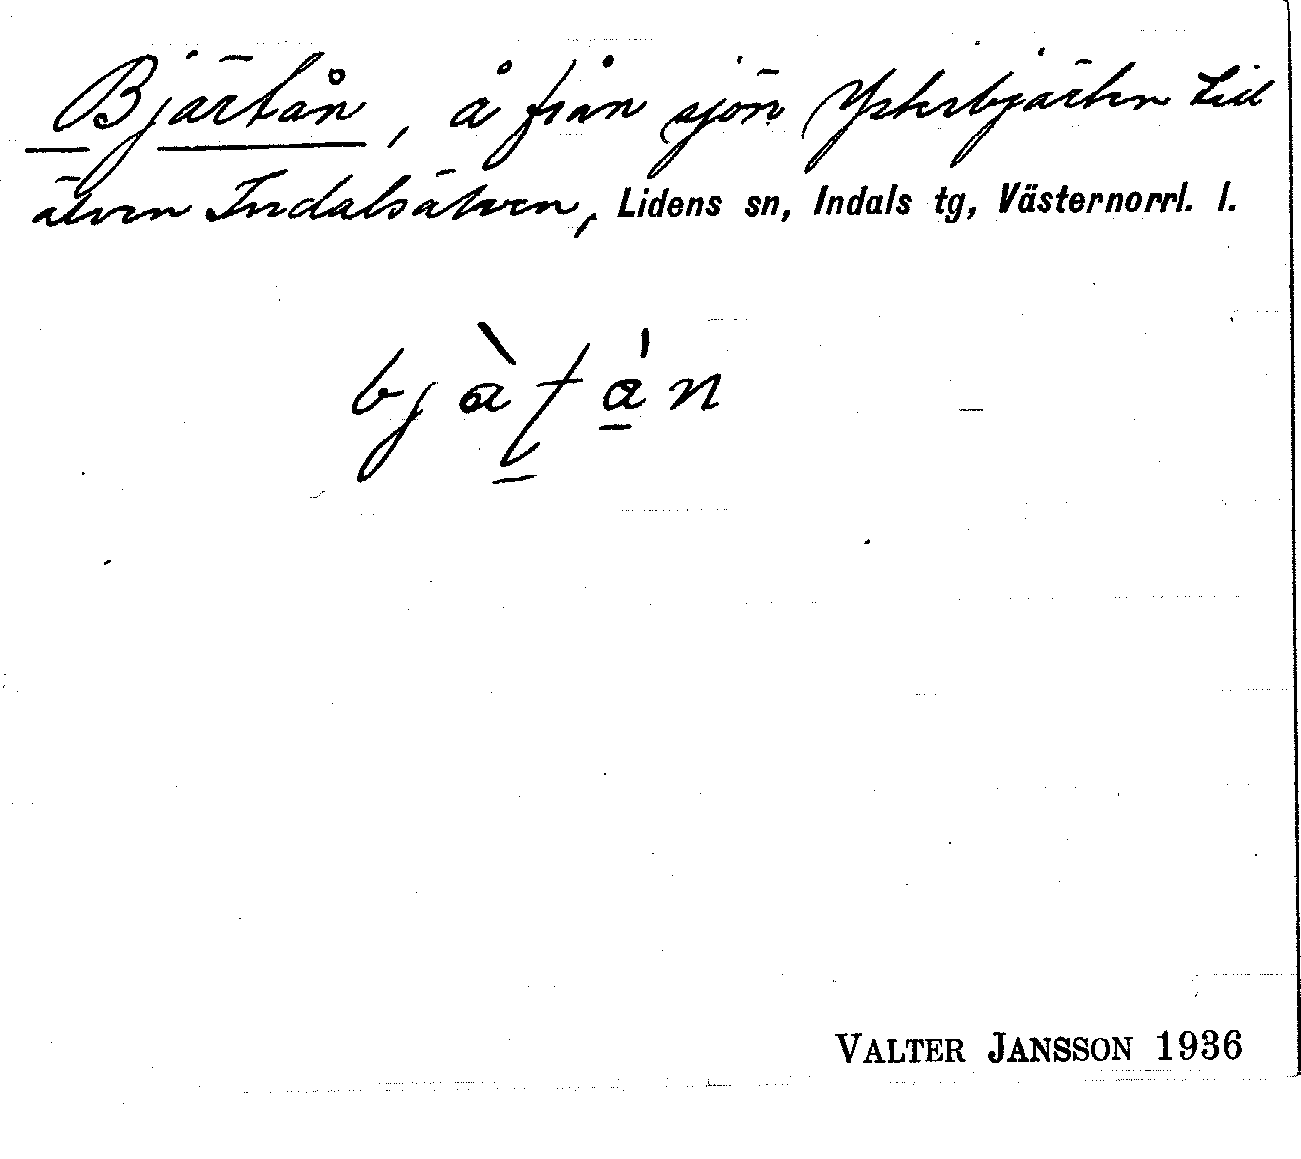 Bjärtån, å från sjön Ysterbjärten till
älven Indalsälven, Lidens sn, Indals tg, Västernorrl. l.
bjɑ̀ʈɑ́n
VALTER JANSSON 1936